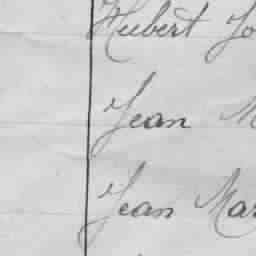 Hubert Jo
Jean M
Jean Mar